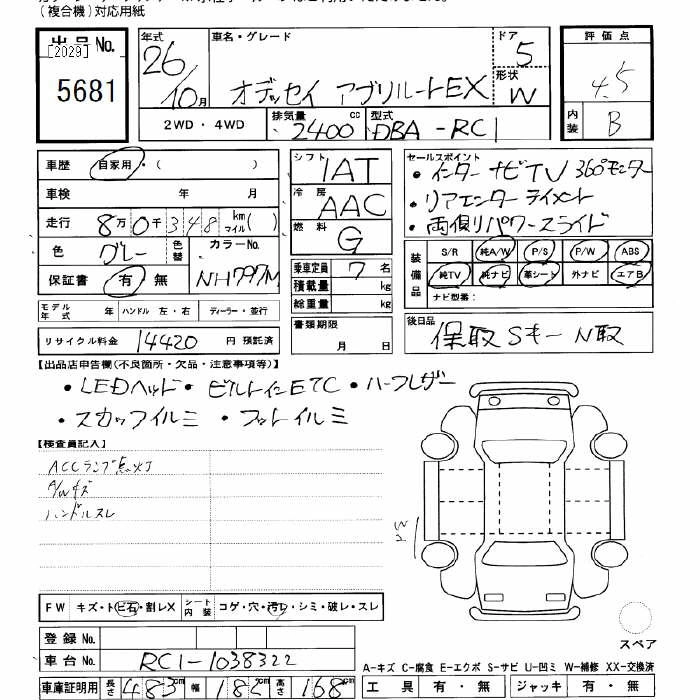 (複合機)対応用紙
出品No.
[2029]
5681
年式 26/10月
車名・グレード
オデッセイ アブソルートEX
ドア 5
形状 W
2WD・4WD
排気量 2400 cc
型式 DBA-RC1
評価点
4.5
内装 B
車歴 自家用・( )
車検 年 月
走行 8万0千348 km マイル( )
色 グレー 色替
カラーNo. NH797M
保証書 有・無
シフト IAT
冷房 AAC
燃料 G
乗車定員 7名
積載量 kg
総重量 kg
書類期限
月 日
セールスポイント
・インターナビTV 360°モニター
・リアエンターテイメント
・両側パワースライド
装備品
S/R 純A/W P/S P/W ABS
純TV 純ナビ 革シート 外ナビ エアB
ナビ型番:
モデル年式 年 ハンドル 左・右 ディーラー・並行
リサイクル料金 14420 円 預託済
後日品
保取Sキー N取
【出品店申告欄(不良箇所・欠品・注意事項等)】
・LEDヘッド・ビルトインETC・ハーフレザー
・スカッフイルミ ・フットイルミ
【検査員記入】
ACCランプ点灯
A/Wキズ
ハンドルスレ
FW キズ・トビ石・割レX
シート内装 コゲ・穴・汚レ・シミ・破レ・スレ
登録No.
車台No. RC1-1038322
車庫証明用 長さ 483cm 幅 182cm 高さ 168cm
スペア
A-キズ C-腐食 E-エクボ S-サビ U-凹ミ W-補修 XX-交換済
工具 有・無 ジャッキ 有・無